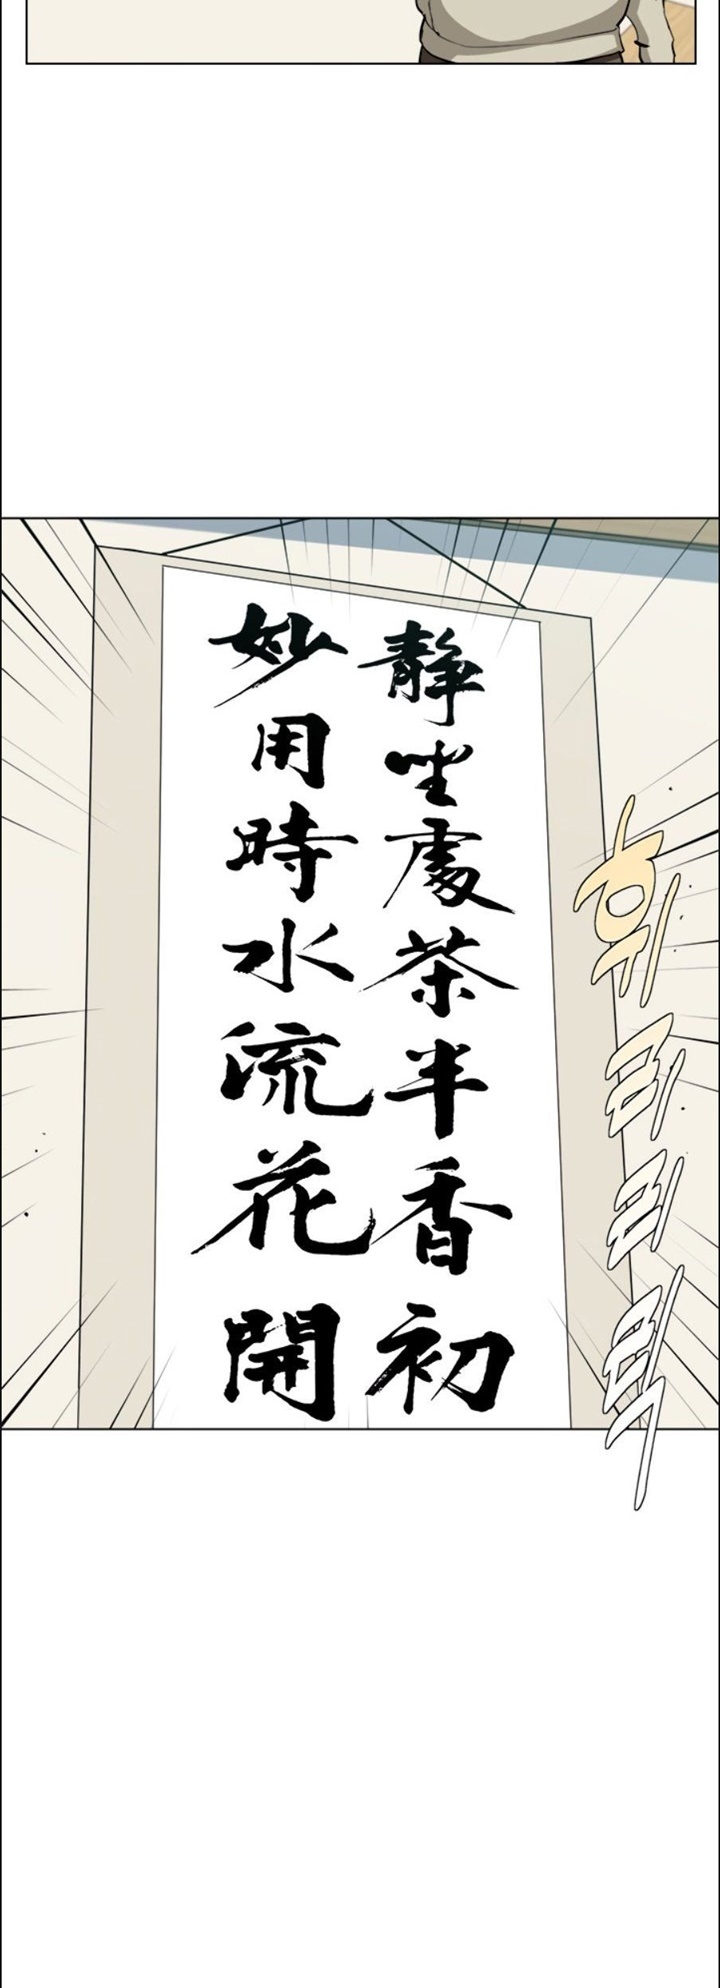 靜坐處茶半香初
妙用時水流花開
휘리리릭